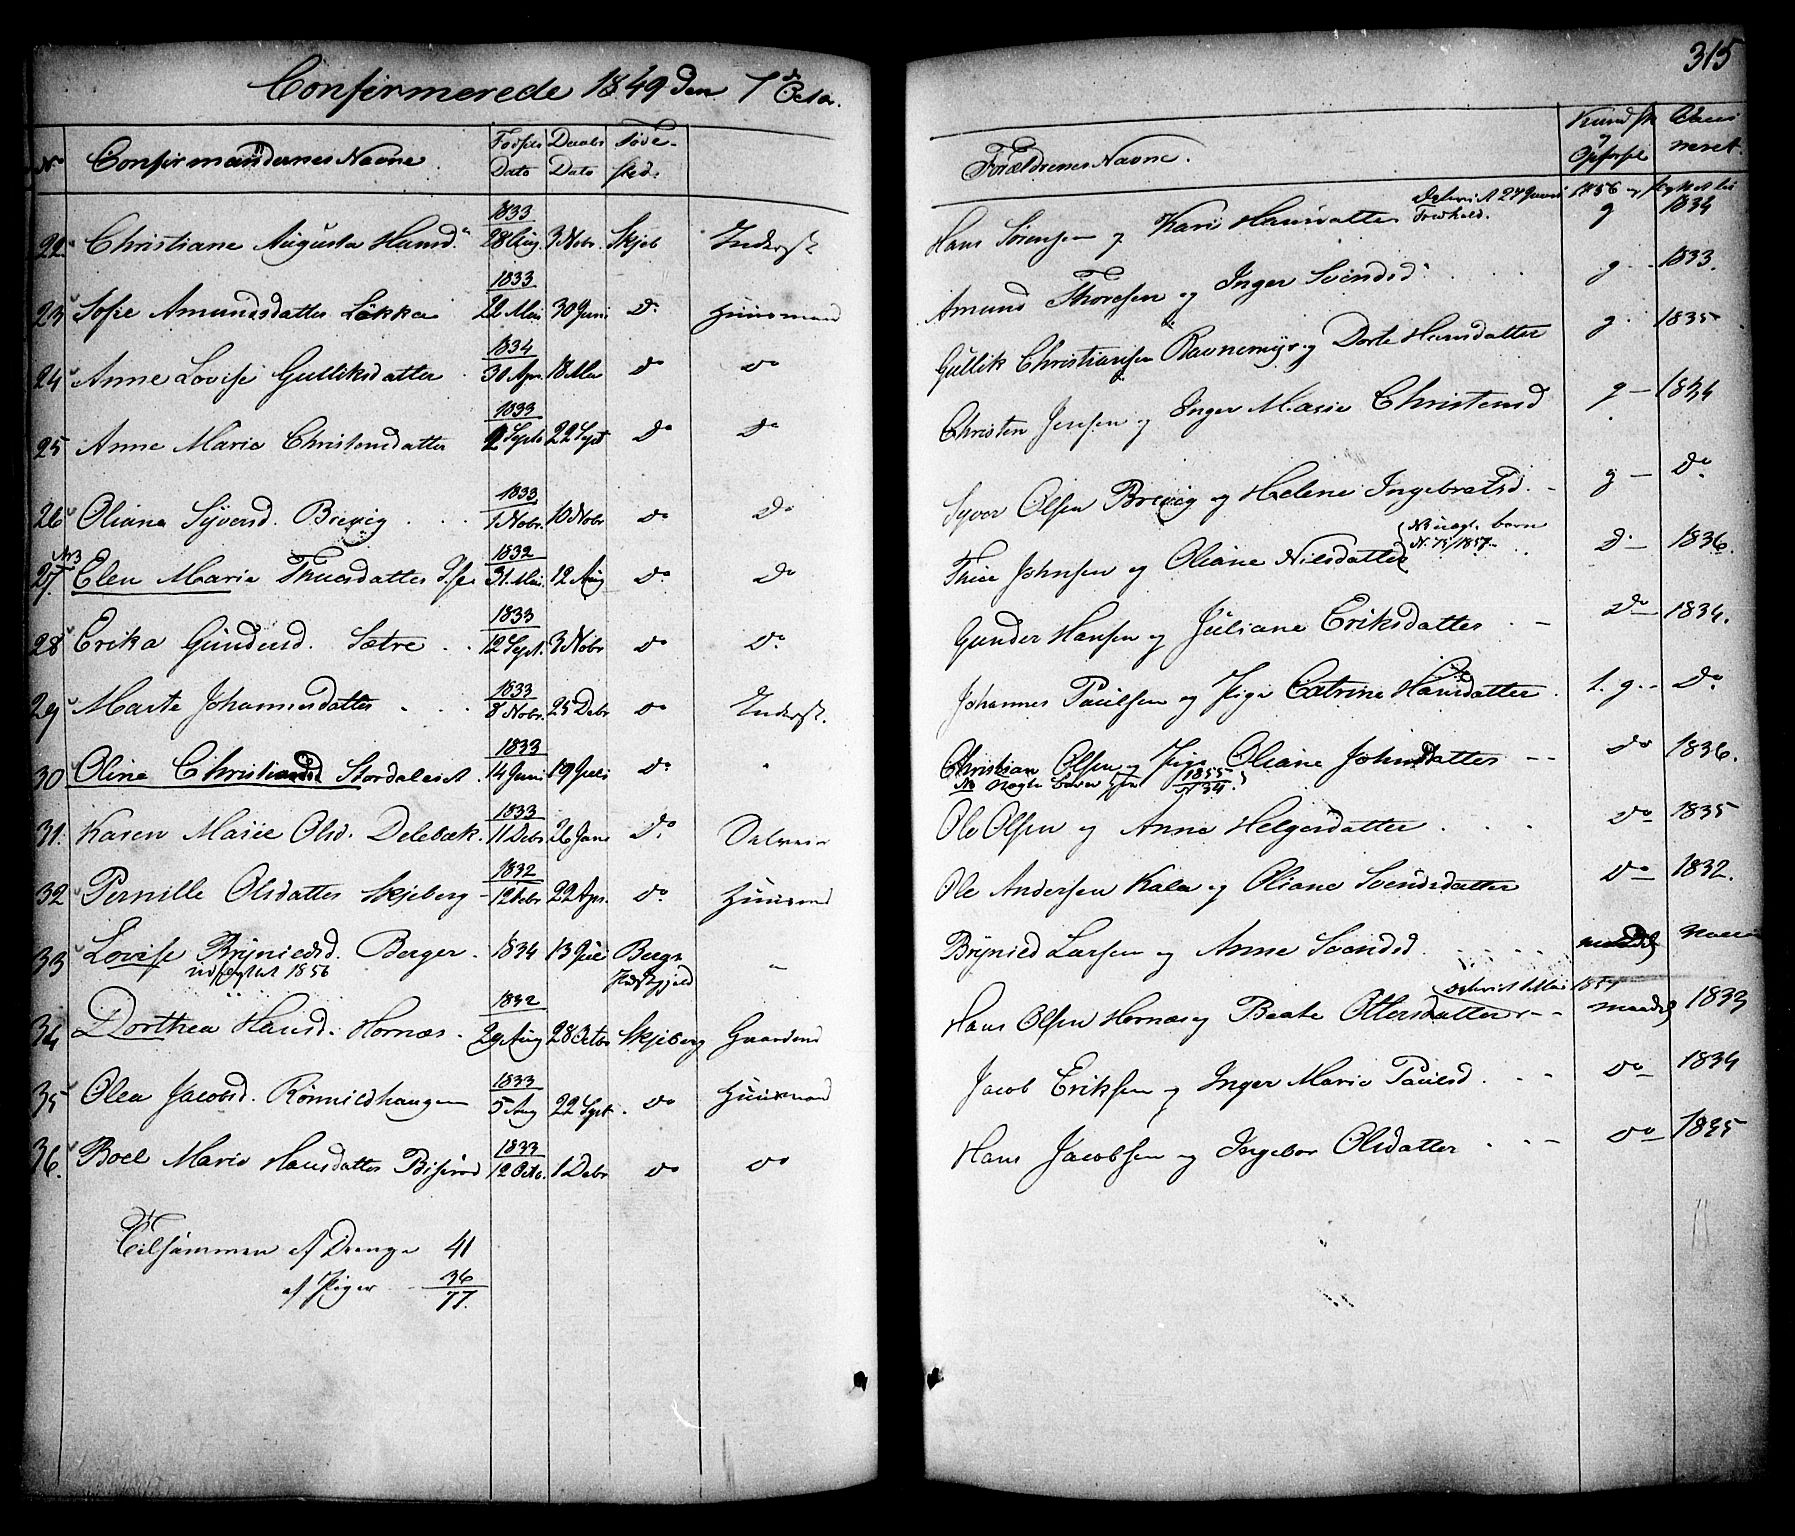 315
Confirmerede 1849 den 7de Octbr.
No Confirmandernes Navne. Fødsels Dato Daabs Dato Føde-sted.
Forældrenes Navne. Kundsk og Opførsel Vacci neret.
22 Christiane Augusta Hansd. 1833 28 Aug. 3 Nobr. Skjeb Inderst
Hans Sørensen og Kari Hansdatter g 1834
23 Sofie Amundsdatter Løkka 1833 22 Mai 30 Juni do Huusmand
Amund Thoresen og Inger Svendsd. g 1833.
24 Anne Lovise Gulliksdatter 1834 30 Apr. 18 Mai do do
Gullik Christiansen Ravnemyr og Dorte Hansdatter g 1835
25 Anne Marie Christensdatter 1833 2 Septb 22 Sept do do
Christen Jensen og Inger Marie Christensd g 1834
26 Oliane Syversd. Brevig 1833 1 Nobr. 10 Nobr do do
Syver Olsen Brevig og Helene Ingebratsd. g do
NB
27. Elen Marie Thuesdatter 1832 31. Mai 12 Aug do do
Thue Johnsen og Oliane Nilsdatter NB uægt. barn N. 75/1857 d 1836.
28 Erika Gundersd. Sætre 1833 12 Sept. 3 Nobr do do
Gunder Hansen og Juliane Eriksdatter do 1834.
29 Marte Johannesdatter 1833 8 Nobr. 25 Debr do Inderst.
Johannes Paulsen og Pige Catrine Hansdatter t. g. do
30 Oline Christiansd Stordaleset 1833 14 Juni 19 Juli do
Christian Olsen og Pige Oliane Johnsdatter do 1836.
NB uægte barn 1855
31. Karen Marie Olsd. Delebæk. 1833 11 Debr 26 Jan do
Ole Olsen og Anne Helgesdatter do 1835
32 Pernille Olsdatter Skjeberg 1832 12 Febr 22 Apr. do Huusmd
Ole Andersen Kala og Oliane Svendsdatter do 1832.
33 Lovise Brynildsd. Berger. 1834 13 Juli Bergs Præstgjeld
udflyttet 1856
Brynild Larsen og Anne Svendsd
34 Dorthea Hansd. Hornæs. 1832 29 Aug 28 Octbr Skjeberg Gaardmd
Hans Olsen Hornæs og Beate Ottersdatter maadel 1833
35 Olea Jacobsd. Rønnildhaugen 1833 5 Aug 22 Sept. do Huusmand
Jacob Eriksen og Inger Marie Paulsd. do 1834
36. Boel Marie Hansdatter 1833 12 Octb. 1 Debr do do
Hans Jacobsen og Ingebor Olsdatter do 1835
Tilsammen af Drenge 41
af Piger 36
77.